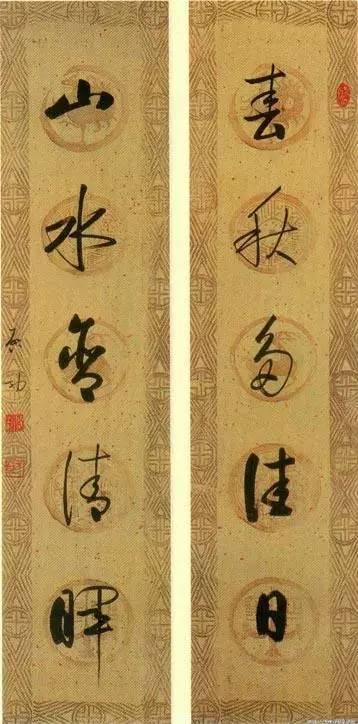 春秋多佳日
山水含清暉
启功